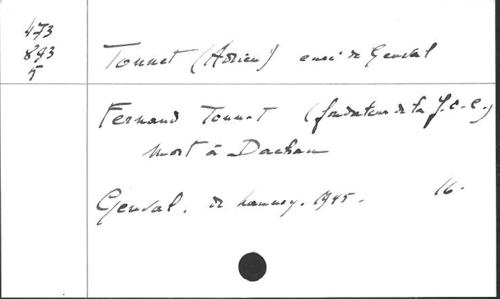 473
893
5
Tonnet (Adrien) curé de Genval
Fernand Tonnet (fondateur de la J.O.C.)
mort à Dachau
Genval. de Lannoy. 1945. 16.